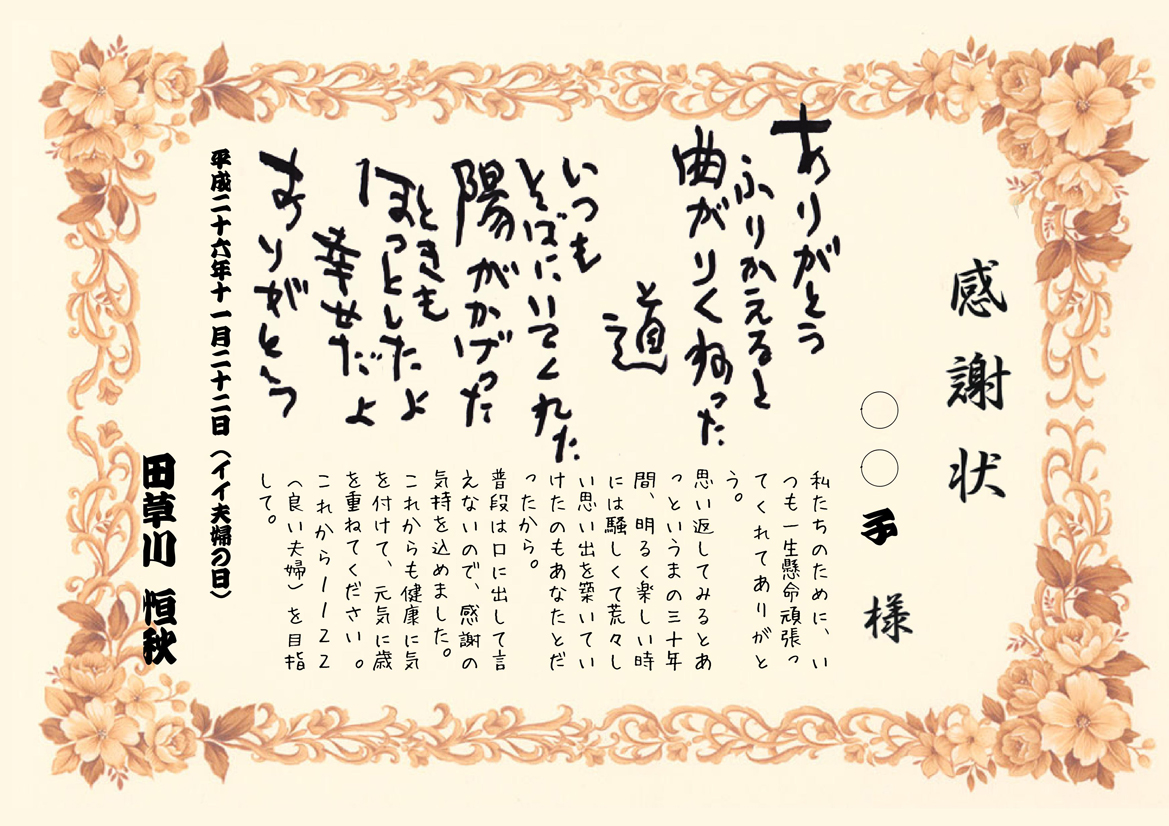 感謝状
〇〇子 様
ありがとう
ふりかえると
曲がりくねった
道
と
いつも
そばにいてくれた
陽がかげった
ときも
ほっとしたよ
幸せだよ
ありがとう
私たちのために、い
つも一生懸命頑張っ
てくれてありがと
う。
思い返してみるとあ
っというまの三十年
間、明るく楽しい時
には騒しくて荒々し
い思い出を築いてい
けたのもあなたとだ
ったから。
普段は口に出して言
えないので、感謝の
気持を込めました。
これからも健康に気
を付けて、元気に歳
を重ねてください。
これから1122
(良い夫婦)を目指
して。
平成二十六年十一月二十二日(イイ夫婦の日)
田草川 恒秋